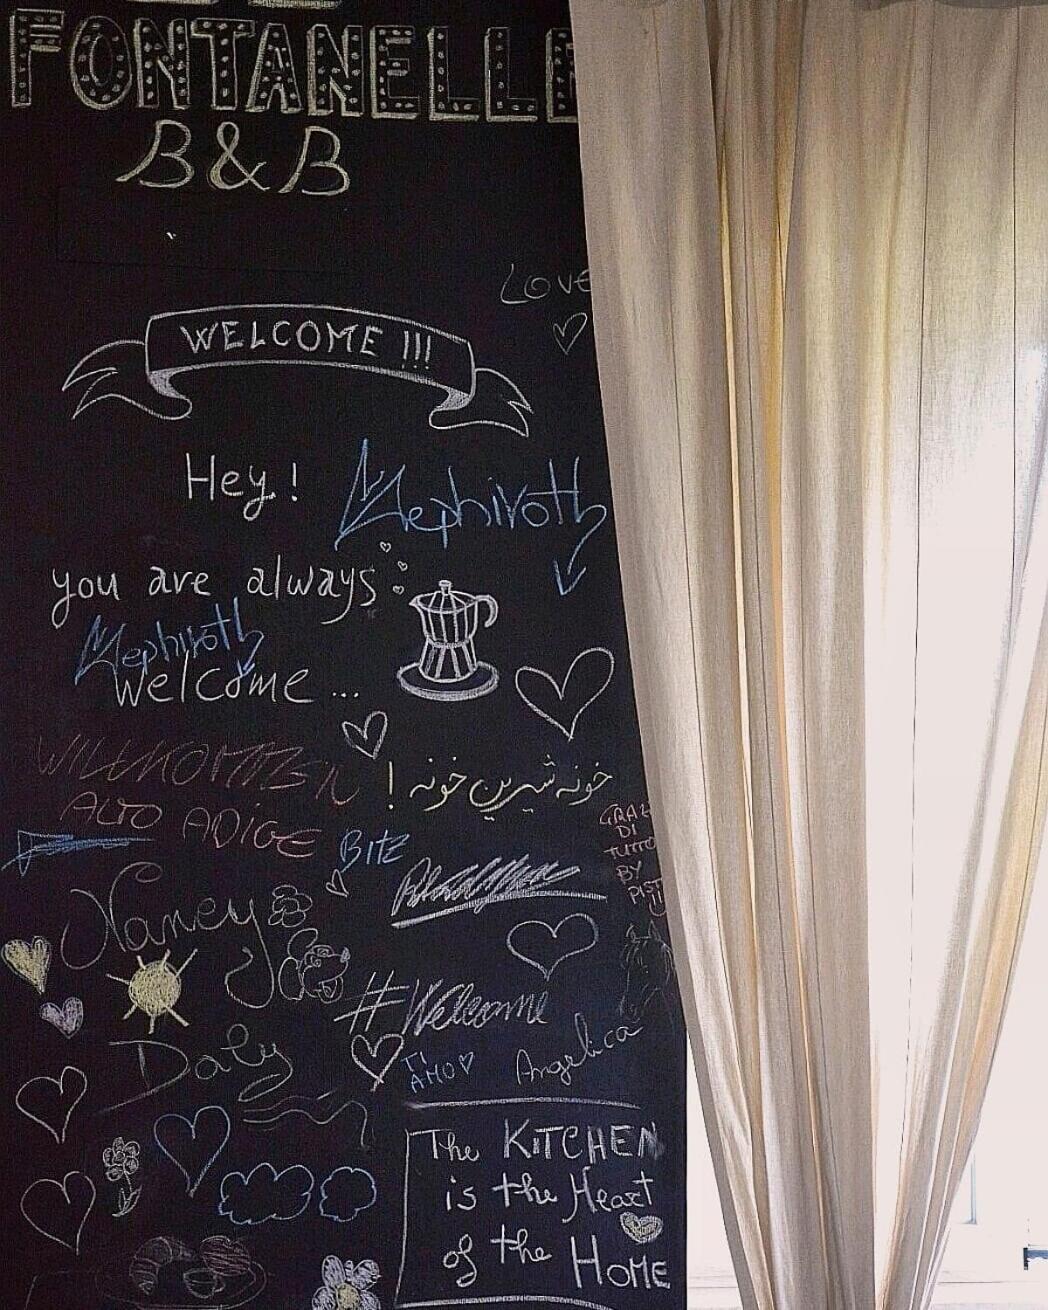 FONTANELLE
B&B
LOVE
WELCOME !!!
Hey!
Nephiroth
you are always
Nephiroth
welcome...
WILLKOMMEN
خونه شیرین خونه !
ALTO ADIGE
BITE
DI
TUTTO
BY
Nancy
#Welcome
Daly
TI
AMO
Angelica
The KITCHEN
is the Heart
of the HOME